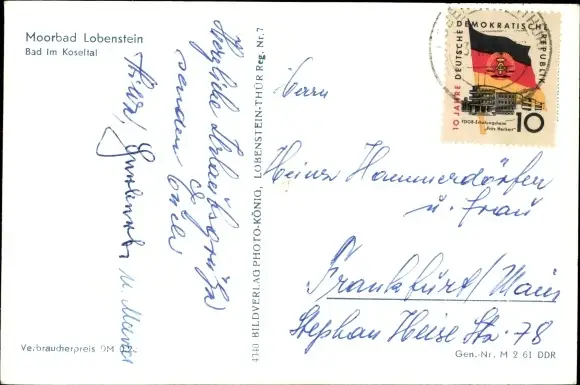 Moorbad Lobenstein
Bad im Koseltal
Herzliche Urlaubsgrüße
senden Euch
u.
Verbraucherpreis DM
4340 BILDVERLAG PHOTO-KÖNIG, LOBENSTEIN-THÜR Reg. Nr. 7
10 JAHRE DEUTSCHE DEMOKRATISCHE REPUBLIK
FDGB-Erholungsheim
„Fritz Heckert“
10
Herrn
Heinz Hammerdörfer
u. Frau
Frankfurt/Main
Stephan Heise Str. 78
Gen.-Nr. M 2 61 DDR